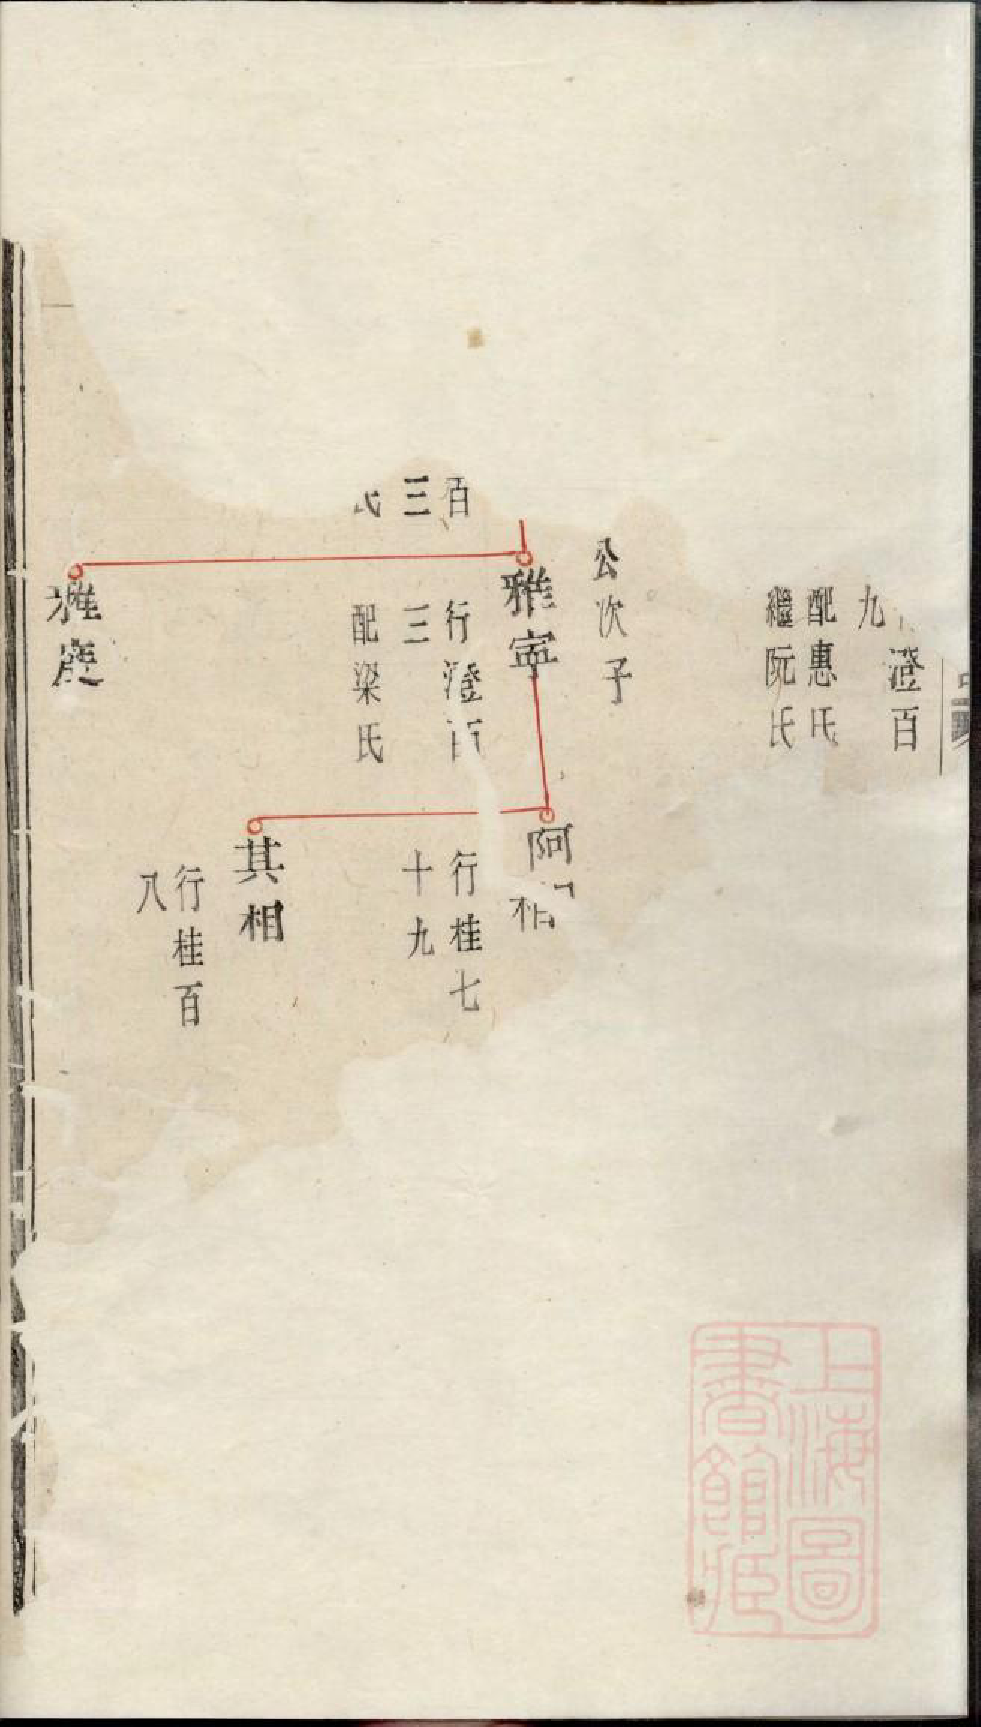 澄百
九
配惠氏
繼阮氏
公次子
雅寧
百
三
氏
行澄百
三
配梁氏
雅
阿相
行桂七
十九
其相
行桂百
八
上海圖
書館藏